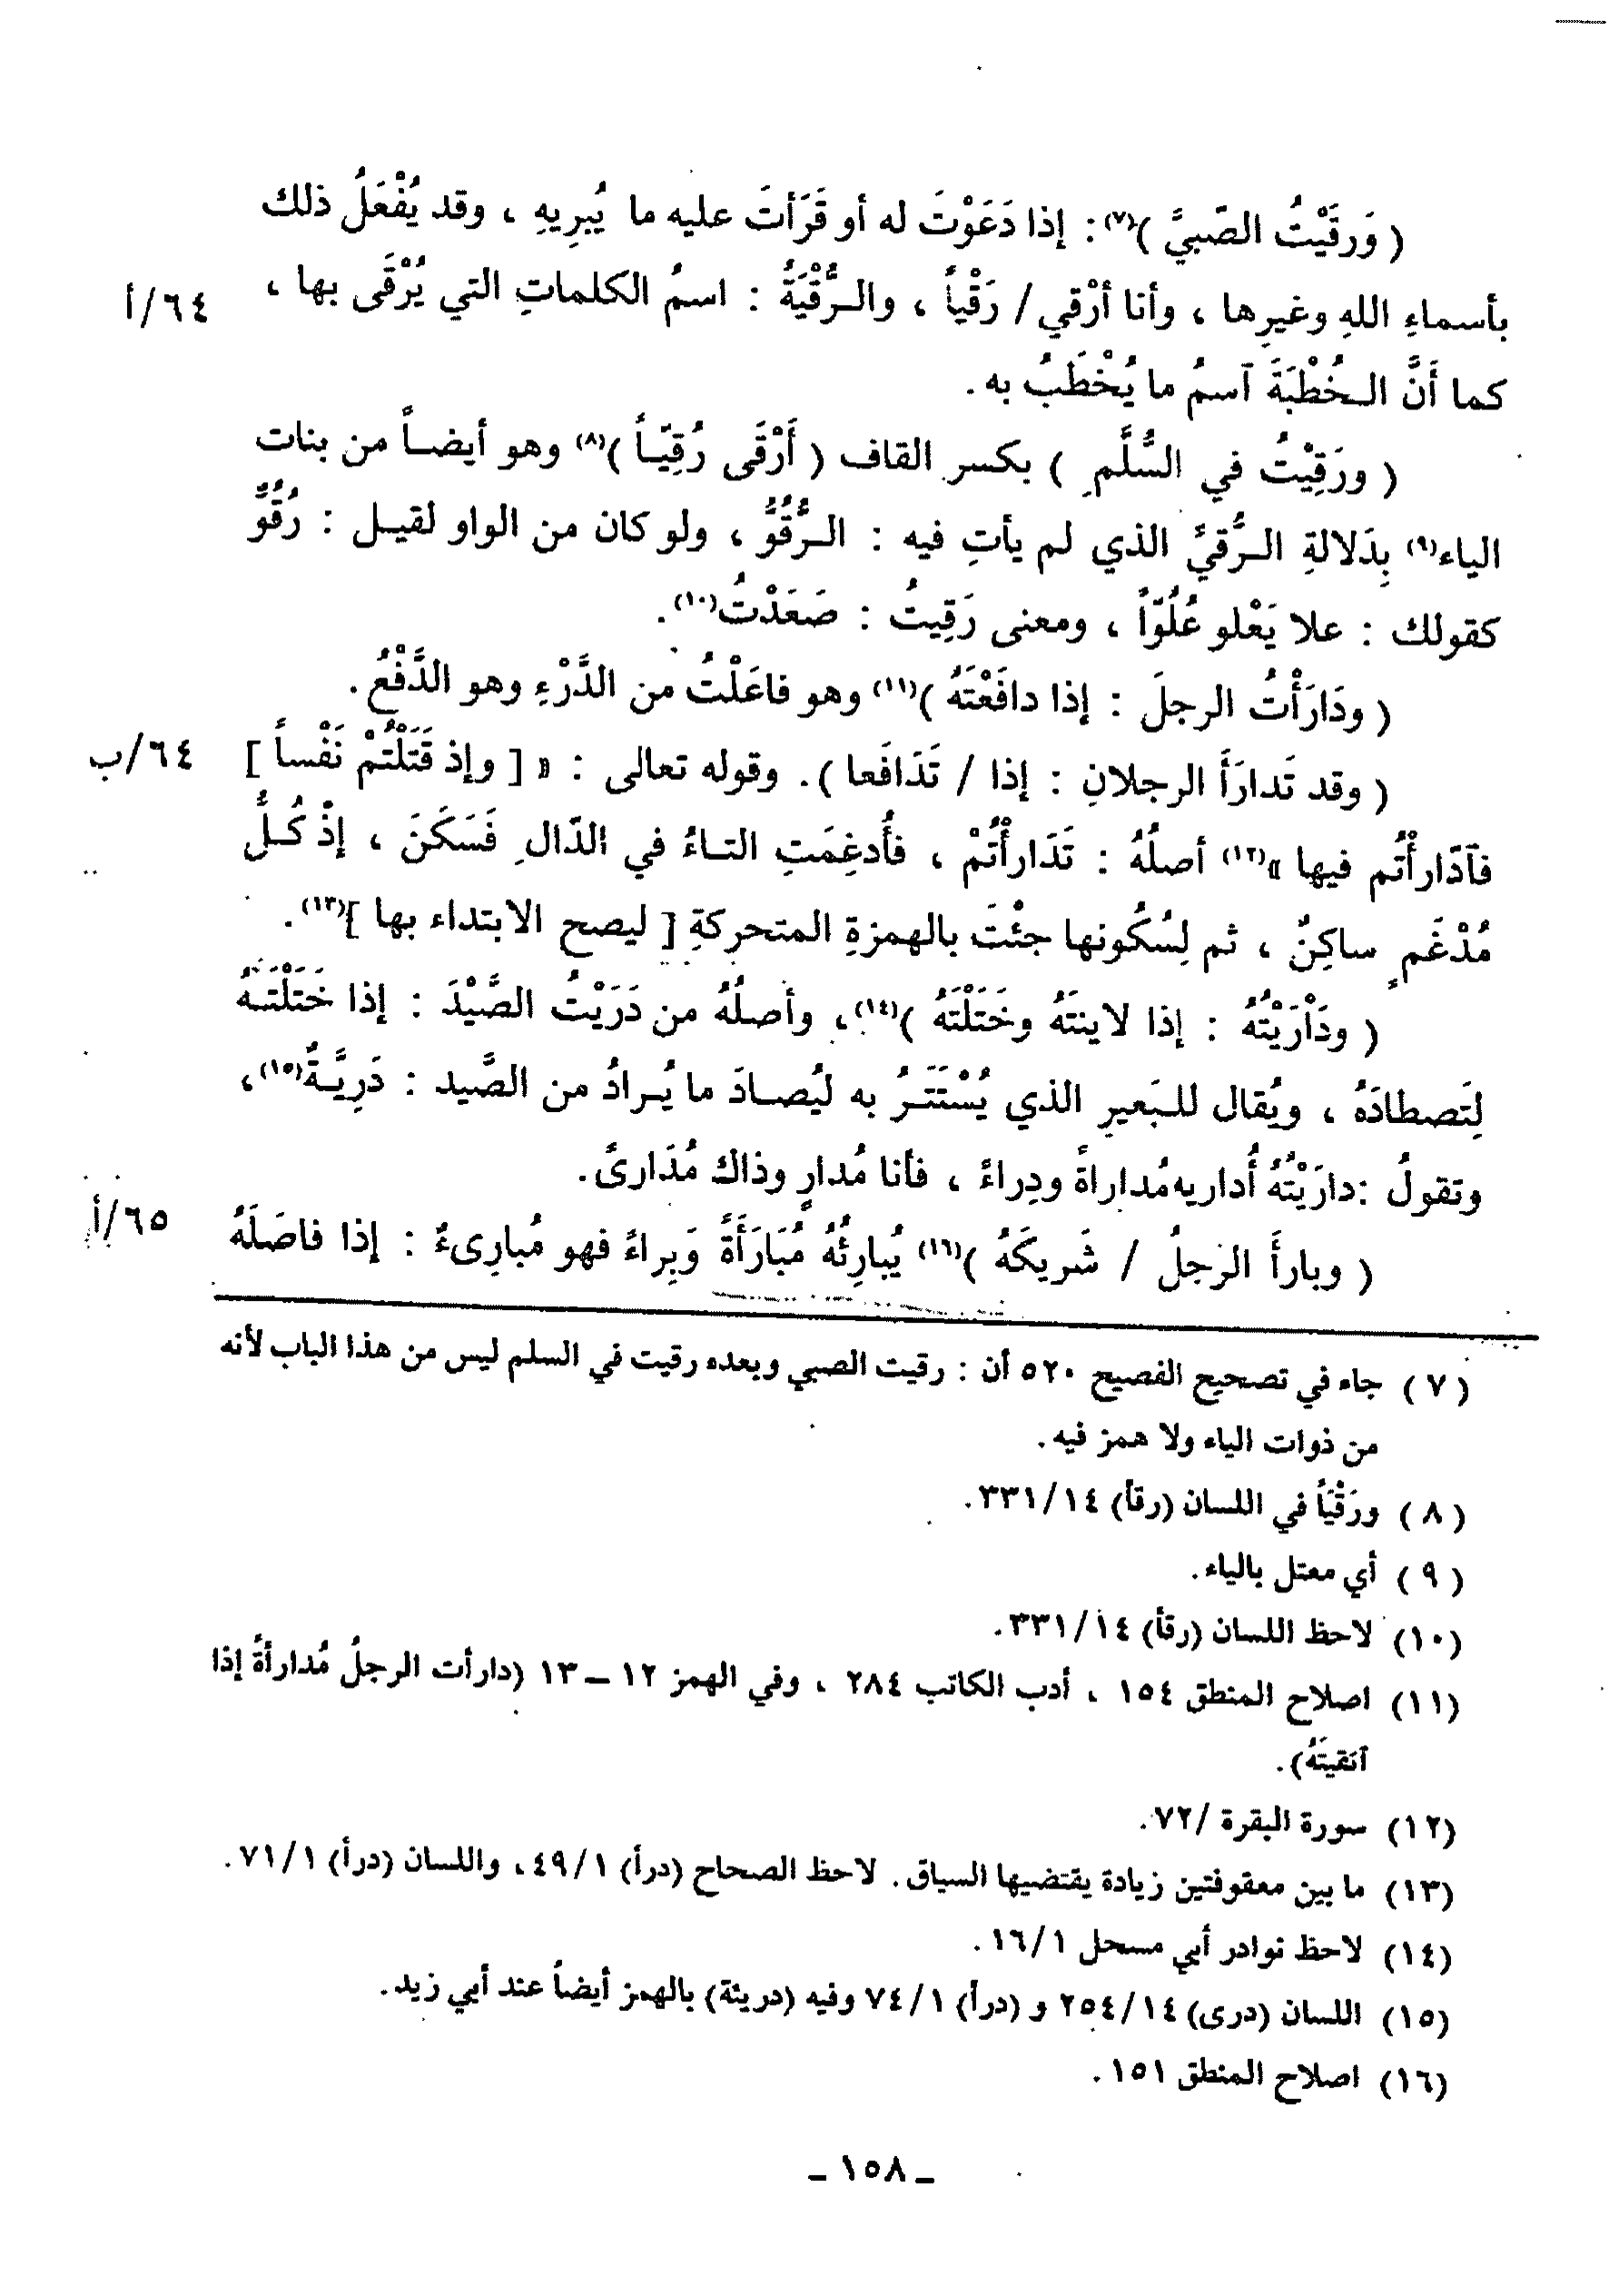 ( وَرقَيْتُ الصّبيَّ )(٧) : إذا دَعَوْتَ له أو قَرَأتَ عليه ما يُبرِيهِ ، وقد يُفْعَلُ ذلك
بأسماءِ اللهِ وغيرِها ، وأنا أرْقي / رَقْياً ، والـرُّقْيَةُ : اسمُ الكلماتِ التي يُرْقَى بها ،
٦٤/أ
كما أَنَّ الـخُطْبَةَ آسمُ ما يُخْطَبُ به .
( ورَقِيْتُ في السُّلَّمِ ) بكسر القاف ( أَرْقَى رُقِيّـاً )(٨) وهو أيضـاً من بنات
الياء(٩) بِدَلالةِ الـرُّقيِّ الذي لم يأتِ فيه : الـرُّقُوُّ ، ولو كان من الواو لقيـل : رُقُوٌّ
كقولك : علا يَعْلو عُلُوّاً ، ومعنى رَقِيتُ : صَعَدْتُ(١٠) .
( ودَارَأْتُ الرجلَ : إذا دافَعْتَهُ )(١١) وهو فاعَلْتُ من الدَّرْءِ وهو الدَّفْعُ .
( وقد تَدارَأَ الرجلانِ : إذا / تَدَافَعا ) . وقوله تعالى : « [ وإذ قَتَلْتُمْ نَفْساً ]
٦٤/ب
فآدّارأْتُم فيها »(١٢) أصلُهُ : تَدَارأْتُمْ ، فأُدغِمَتِ التـاءُ في الدّالِ فَسَكَنَ ، إذْ كُـلُّ
مُدْغَمٍ ساكِنٌ ، ثم لِسُكُونها جئْتَ بالهمزةِ المتحركةِ [ ليصح الابتداء بها ](١٣) .
( ودَاْرَيْتُهُ : إذا لاينتَهُ وخَتَلْتَهُ )(١٤) ، وأصلُهُ من دَرَيْتُ الصَّيْدَ : إذا خَتَلْتَـهُ
لِتَصطادَهُ ، ويُقال للـبَعيرِ الذي يُسْتَتَـرُ به ليُصـادَ ما يُـرادُ من الصَّيد : دَرِيَّـةٌ(١٥) ،
وتقولُ : دارَيْتُهُ أُداريه مُداراةً ودِراءً ، فأنا مُدارٍ وذاك مُدَارىً .
( وبارأَ الرجلُ / شَريكَهُ )(١٦) يُبارِئُهُ مُبَارَأَةً وَبِراءً فهو مُبارِىءٌ : إذا فاصَلَهُ
٦٥/أ
( ٧ ) جاء في تصحيح الفصيح ٥٢٠ أن : رقيت الصبي وبعده رقيت في السلم ليس من هذا الباب لأنه
من ذوات الياء ولا همز فيه .
( ٨ ) ورَقْيَاً في اللسان (رقأ) ٣٣١/١٤ .
( ٩ ) أي معتل بالياء .
(١٠) لاحظ اللسان (رقأ) ٣٣١/١٤ .
(١١) اصلاح المنطق ١٥٤ ، أدب الكاتب ٢٨٤ ، وفي الهمز ١٢ ــ ١٣ (دارأت الرجلُ مُدارأةً إذا
آتقيتَهُ) .
(١٢) سورة البقرة /٧٢ .
(١٣) ما بين معقوفتين زيادة يقتضيها السياق . لاحظ الصحاح (درأ) ٤٩/١ ، واللسان (درأ) ٧١/١ .
(١٤) لاحظ نوادر أبي مسحل ١٦/١ .
(١٥) اللسان (درى) ٢٥٤/١٤ و (درأ) ٧٤/١ وفيه (دريئة) بالهمز أيضاً عند أبي زيد .
(١٦) اصلاح المنطق ١٥١ .
ــ ١٥٨ ــ